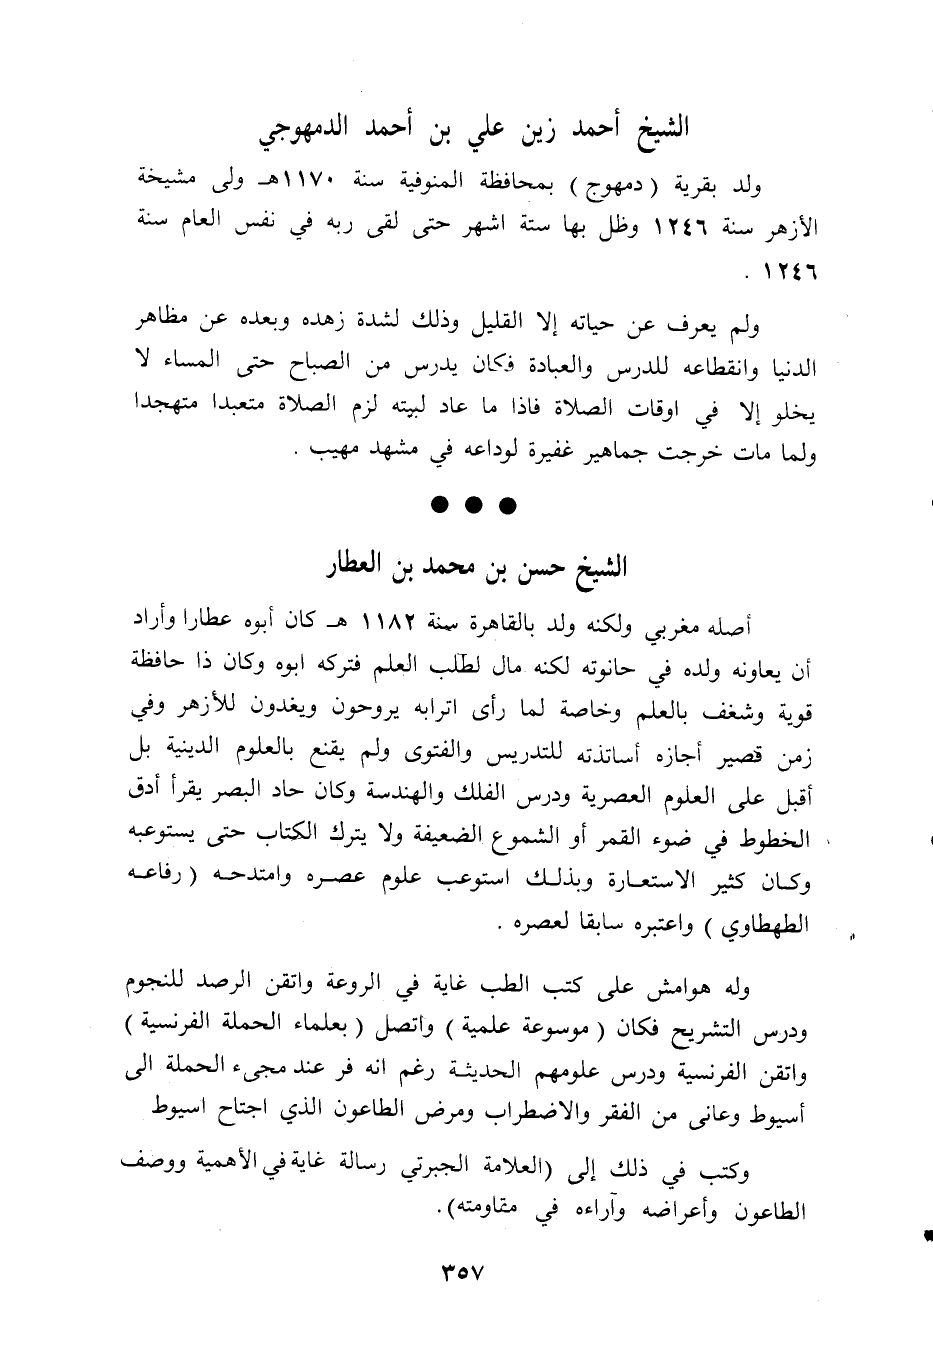 الشيخ أحمد زين علي بن أحمد الدمهوجي
ولد بقرية (دمهوج) بمحافظة المنوفية سنة ١١٧٠هـ ولى مشيخة
الأزهر سنة ١٢٤٦ وظل بها ستة اشهر حتى لقى ربه في نفس العام سنة
١٢٤٦ .
ولم يعرف عن حياته إلا القليل وذلك لشدة زهده وبعده عن مظاهر
الدنيا وانقطاعه للدرس والعبادة فكان يدرس من الصباح حتى المساء لا
يخلو إلا في اوقات الصلاة فاذا ما عاد لبيته لزم الصلاة متعبدا متهجدا
ولما مات خرجت جماهير غفيرة لوداعه في مشهد مهيب .
● ● ●
الشيخ حسن بن محمد بن العطار
أصله مغربي ولكنه ولد بالقاهرة سنة ١١٨٢ هـ كان أبوه عطارا وأراد
أن يعاونه ولده في حانوته لكنه مال لطلب العلم فتركه ابوه وكان ذا حافظة
قوية وشغف بالعلم وخاصة لما رأى اترابه يروحون ويغدون للأزهر وفي
زمن قصير أجازه أساتذته للتدريس والفتوى ولم يقنع بالعلوم الدينية بل
أقبل على العلوم العصرية ودرس الفلك والهندسة وكان حاد البصر يقرأ أدق
الخطوط في ضوء القمر أو الشموع الضعيفة ولا يترك الكتاب حتى يستوعبه
وكان كثير الاستعارة وبذلك استوعب علوم عصره وامتدحه ( رفاعه
الطهطاوي ) واعتبره سابقا لعصره .
وله هوامش على كتب الطب غاية في الروعة واتقن الرصد للنجوم
ودرس التشريح فكان ( موسوعة علمية ) واتصل ( بعلماء الحملة الفرنسية )
واتقن الفرنسية ودرس علومهم الحديثة رغم انه فر عند مجىء الحملة الى
أسيوط وعانى من الفقر والاضطراب ومرض الطاعون الذي اجتاح اسيوط
وكتب في ذلك إلى (العلامة الجبرتي رسالة غاية في الأهمية ووصف
الطاعون وأعراضه وآراءه في مقاومته).
٣٥٧